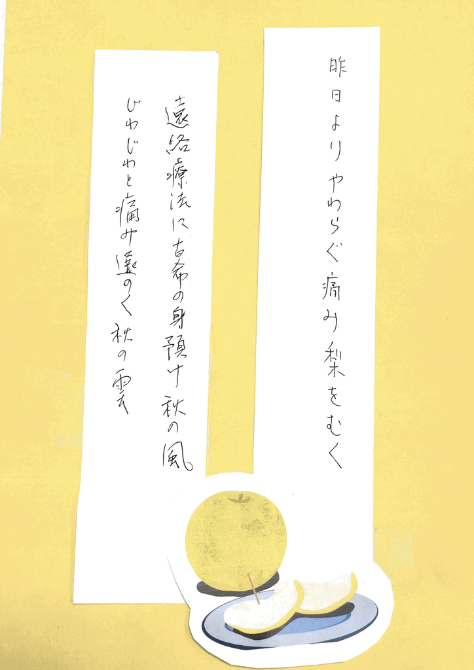 昨日よりやわらぐ痛み梨をむく
遠絡療法に古希の身預け秋の風
じわじわと痛み遠のく秋の雲